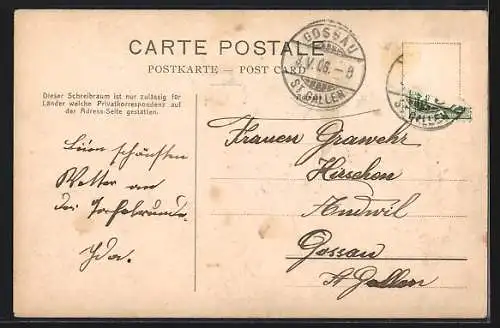 CARTE POSTALE
POSTKARTE — POST CARD
GOSSAU
ST. GALLEN
ST. GALLEN
Dieser Schreibraum ist nur zulässig für
Länder welche Privatkorrespondenz auf
der Adress-Seite gestatten.
schönsten
Wetter an
der Tafelrunde
Ida.
Frauen Grawehr
Hirschen
Andwil
Gossau
St Gallen